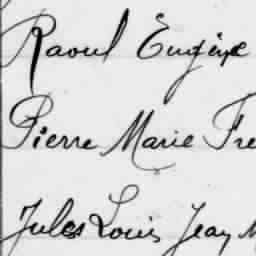 Raoul Eugène
Pierre Marie Fre
Jules Louis Jean M